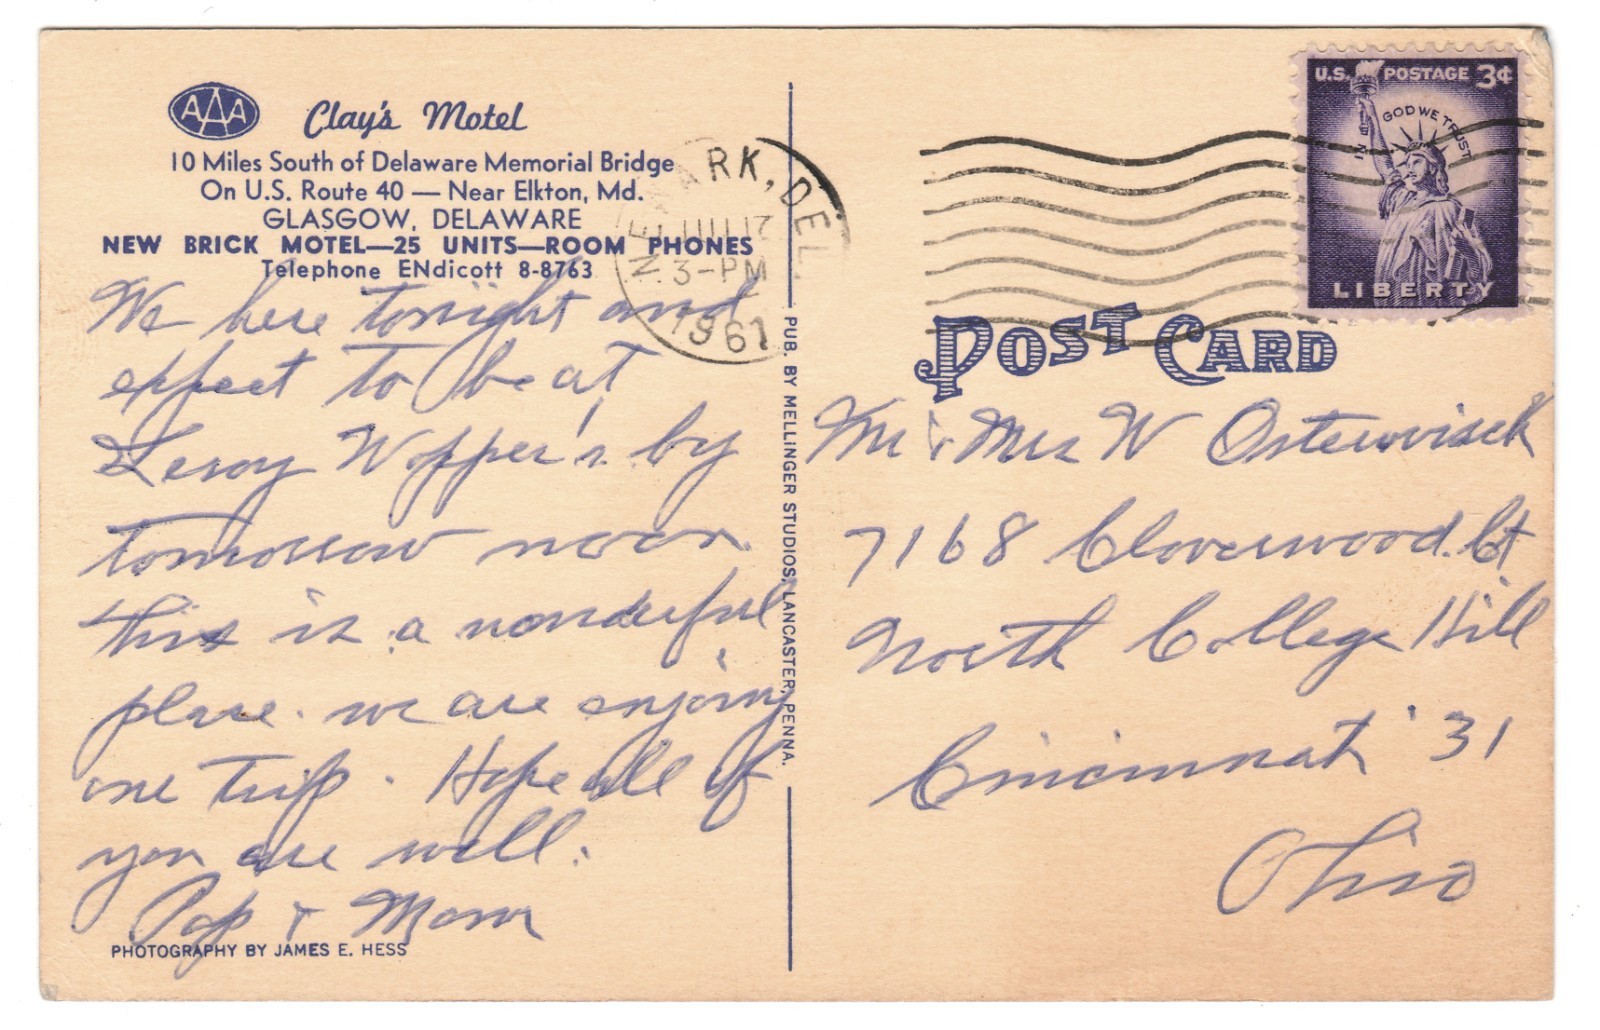 AAA Clay's Motel
10 Miles South of Delaware Memorial Bridge
On U.S. Route 40 — Near Elkton, Md.
GLASGOW, DELAWARE
NEW BRICK MOTEL—25 UNITS—ROOM PHONES
Telephone ENdicott 8-8763
We here tonight and
expect to be at
Leroy Wopper's by
tomorrow noon.
this is a wonderful
place. we are enjoing
one trip. Hope all of
you are well.
Pop & Mom
PHOTOGRAPHY BY JAMES E. HESS
PUB. BY MELLINGER STUDIOS, LANCASTER, PENNA.
NEWARK, DEL.
JUL 17
3-PM
1961
U.S. POSTAGE 3¢
IN GOD WE TRUST
LIBERTY
POST CARD
Mr & Mrs W Osterwisch
7168 Cloverwood. Ct
North College Hill
Cincinnati 31
Ohio